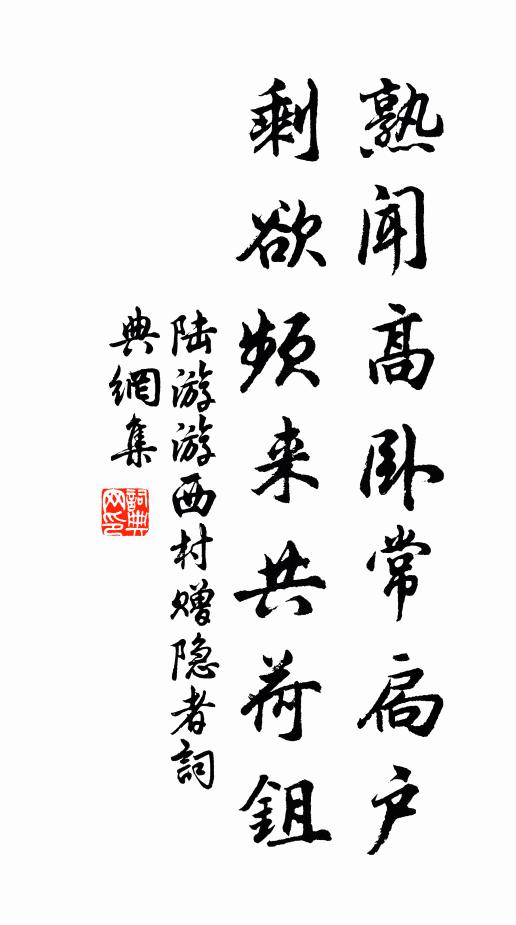 熟闻高卧常扃户
剩欲频来共荷鉏
陆游游西村赠隐者詞
典網集
詞典网印